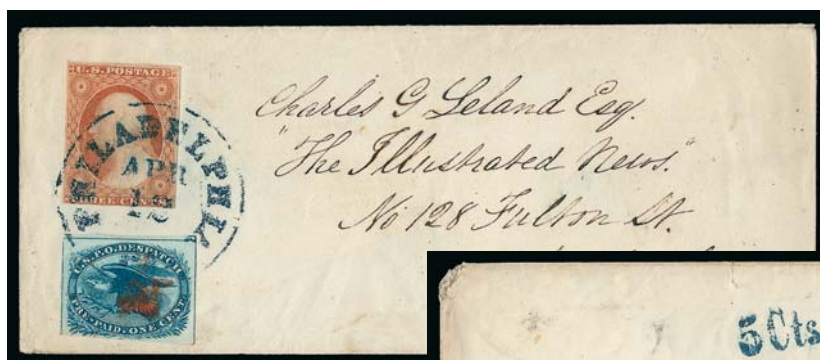 U.S. POSTAGE
THREE CENTS
PHILADELPHIA
APR
U.S.P.O. DESPATCH
PRE-PAID. ONE CENT.
Charles G Leland Esq.
"The Illustrated News."
No 128 Fulton St.
5 Cts